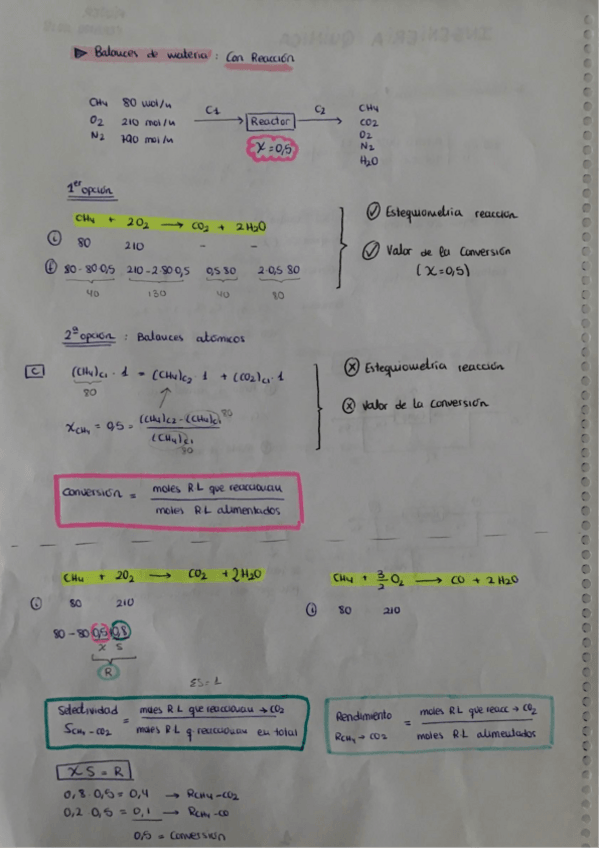 ▶ Balances de materia : Con Reacción
CH4 80 mol/h
O2 210 mol/h
N2 790 mol/h
C1
Reactor
C2
X = 0,5
CH4
CO2
O2
N2
H2O
1er opción
CH4 + 2O2 → CO2 + 2H2O
i 80 210 - -
f 80-80·0,5 210-2·80·0,5 0,5·80 2·0,5·80
40 130 40 80
✓ Estequiometría reacción
✓ Valor de la conversión
(X=0,5)
2ª opción : Balances atómicos
C (CH4)C1 · 1 = (CH4)C2 · 1 + (CO2)C1 · 1
80
XCH4 = 0,5 = (CH4)C2 - (CH4)C1 80 / (CH4)C1 80
x Estequiometría reacción
x Valor de la conversión
Conversión = moles RL que reaccionan / moles RL alimentados
CH4 + 2O2 → CO2 + 2H2O
i 80 210
80-80·0,5·0,8
X S
R
CH4 + 3/2 O2 → CO + 2H2O
i 80 210
ΣS=1
Selectividad SCH4-CO2 = moles RL que reaccionan → CO2 / moles RL q reaccionan en total
Rendimiento RCH4→CO2 = moles RL que reacc → CO2 / moles RL alimentados
X S = R
0,8·0,5 = 0,4 → RCH4-CO2
0,2·0,5 = 0,1 → RCH4-CO
0,5 = Conversión